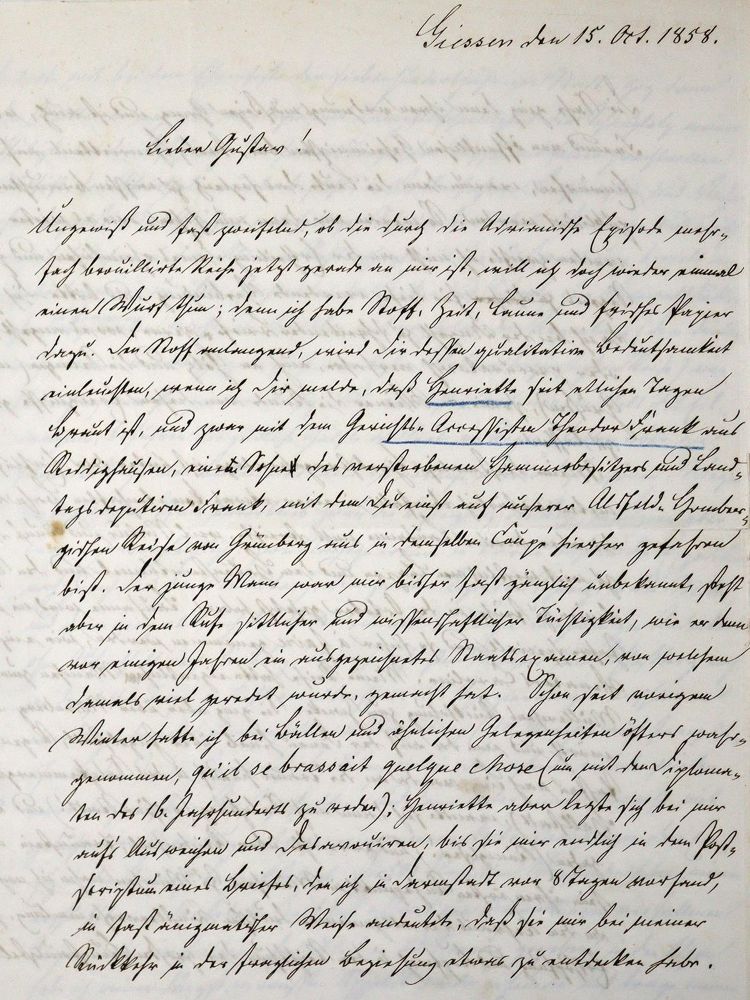 Giessen den 15. Oct. 1858.
Lieber Gustav!
Ungewiß und fast zweifelnd, ob die durch die Adrianische Episode mehr-
fach brouillirte Reihe jetzt gerade an mir ist, will ich doch wieder einmal
einen Wurf thun; denn ich habe Stoff, Zeit, Laune und frisches Papier
dazu. Den Stoff anlangend, wird Dir dessen qualitative Bedeutsamkeit
einleuchten, wenn ich Dir melde, daß Henriette seit etlichen Tagen
Braut ist, und zwar mit dem Gerichts-Accessisten Theodor Frank aus
Reddighausen, einem Sohne des verstorbenen Hammerbesitzers und Land-
tagsdeputirten Frank, mit dem Du einst auf unserer Alsfeld-Homber-
gischen Reise von Grünberg aus in demselben Coupé hierher gefahren
bist. Der junge Mann war mir bisher fast gänzlich unbekannt, steht
aber in dem Rufe sittlicher und wissenschaftlicher Tüchtigkeit, wie er denn
vor einigen Jahren ein ausgezeichnetes Staatsexamen, von welchem
damals viel geredet wurde, gemacht hat. Schon seit vorigem
Winter hatte ich bei Bällen und ähnlichen Gelegenheiten öfters wahr-
genommen, qu'il se brassait quelque chose (um mit den Diploma-
ten des 16. Jahrhunderts zu reden); Henriette aber legte sich bei mir
aufs Ausweichen und Desavouiren, bis sie mir endlich in dem Post-
scriptum eines Briefes, den ich in Darmstadt vor 8 Tagen vorfand,
in fast änigmatischer Weise andeutete, daß sie mir bei meiner
Rückkehr in der fraglichen Beziehung etwas zu entdecken habe.